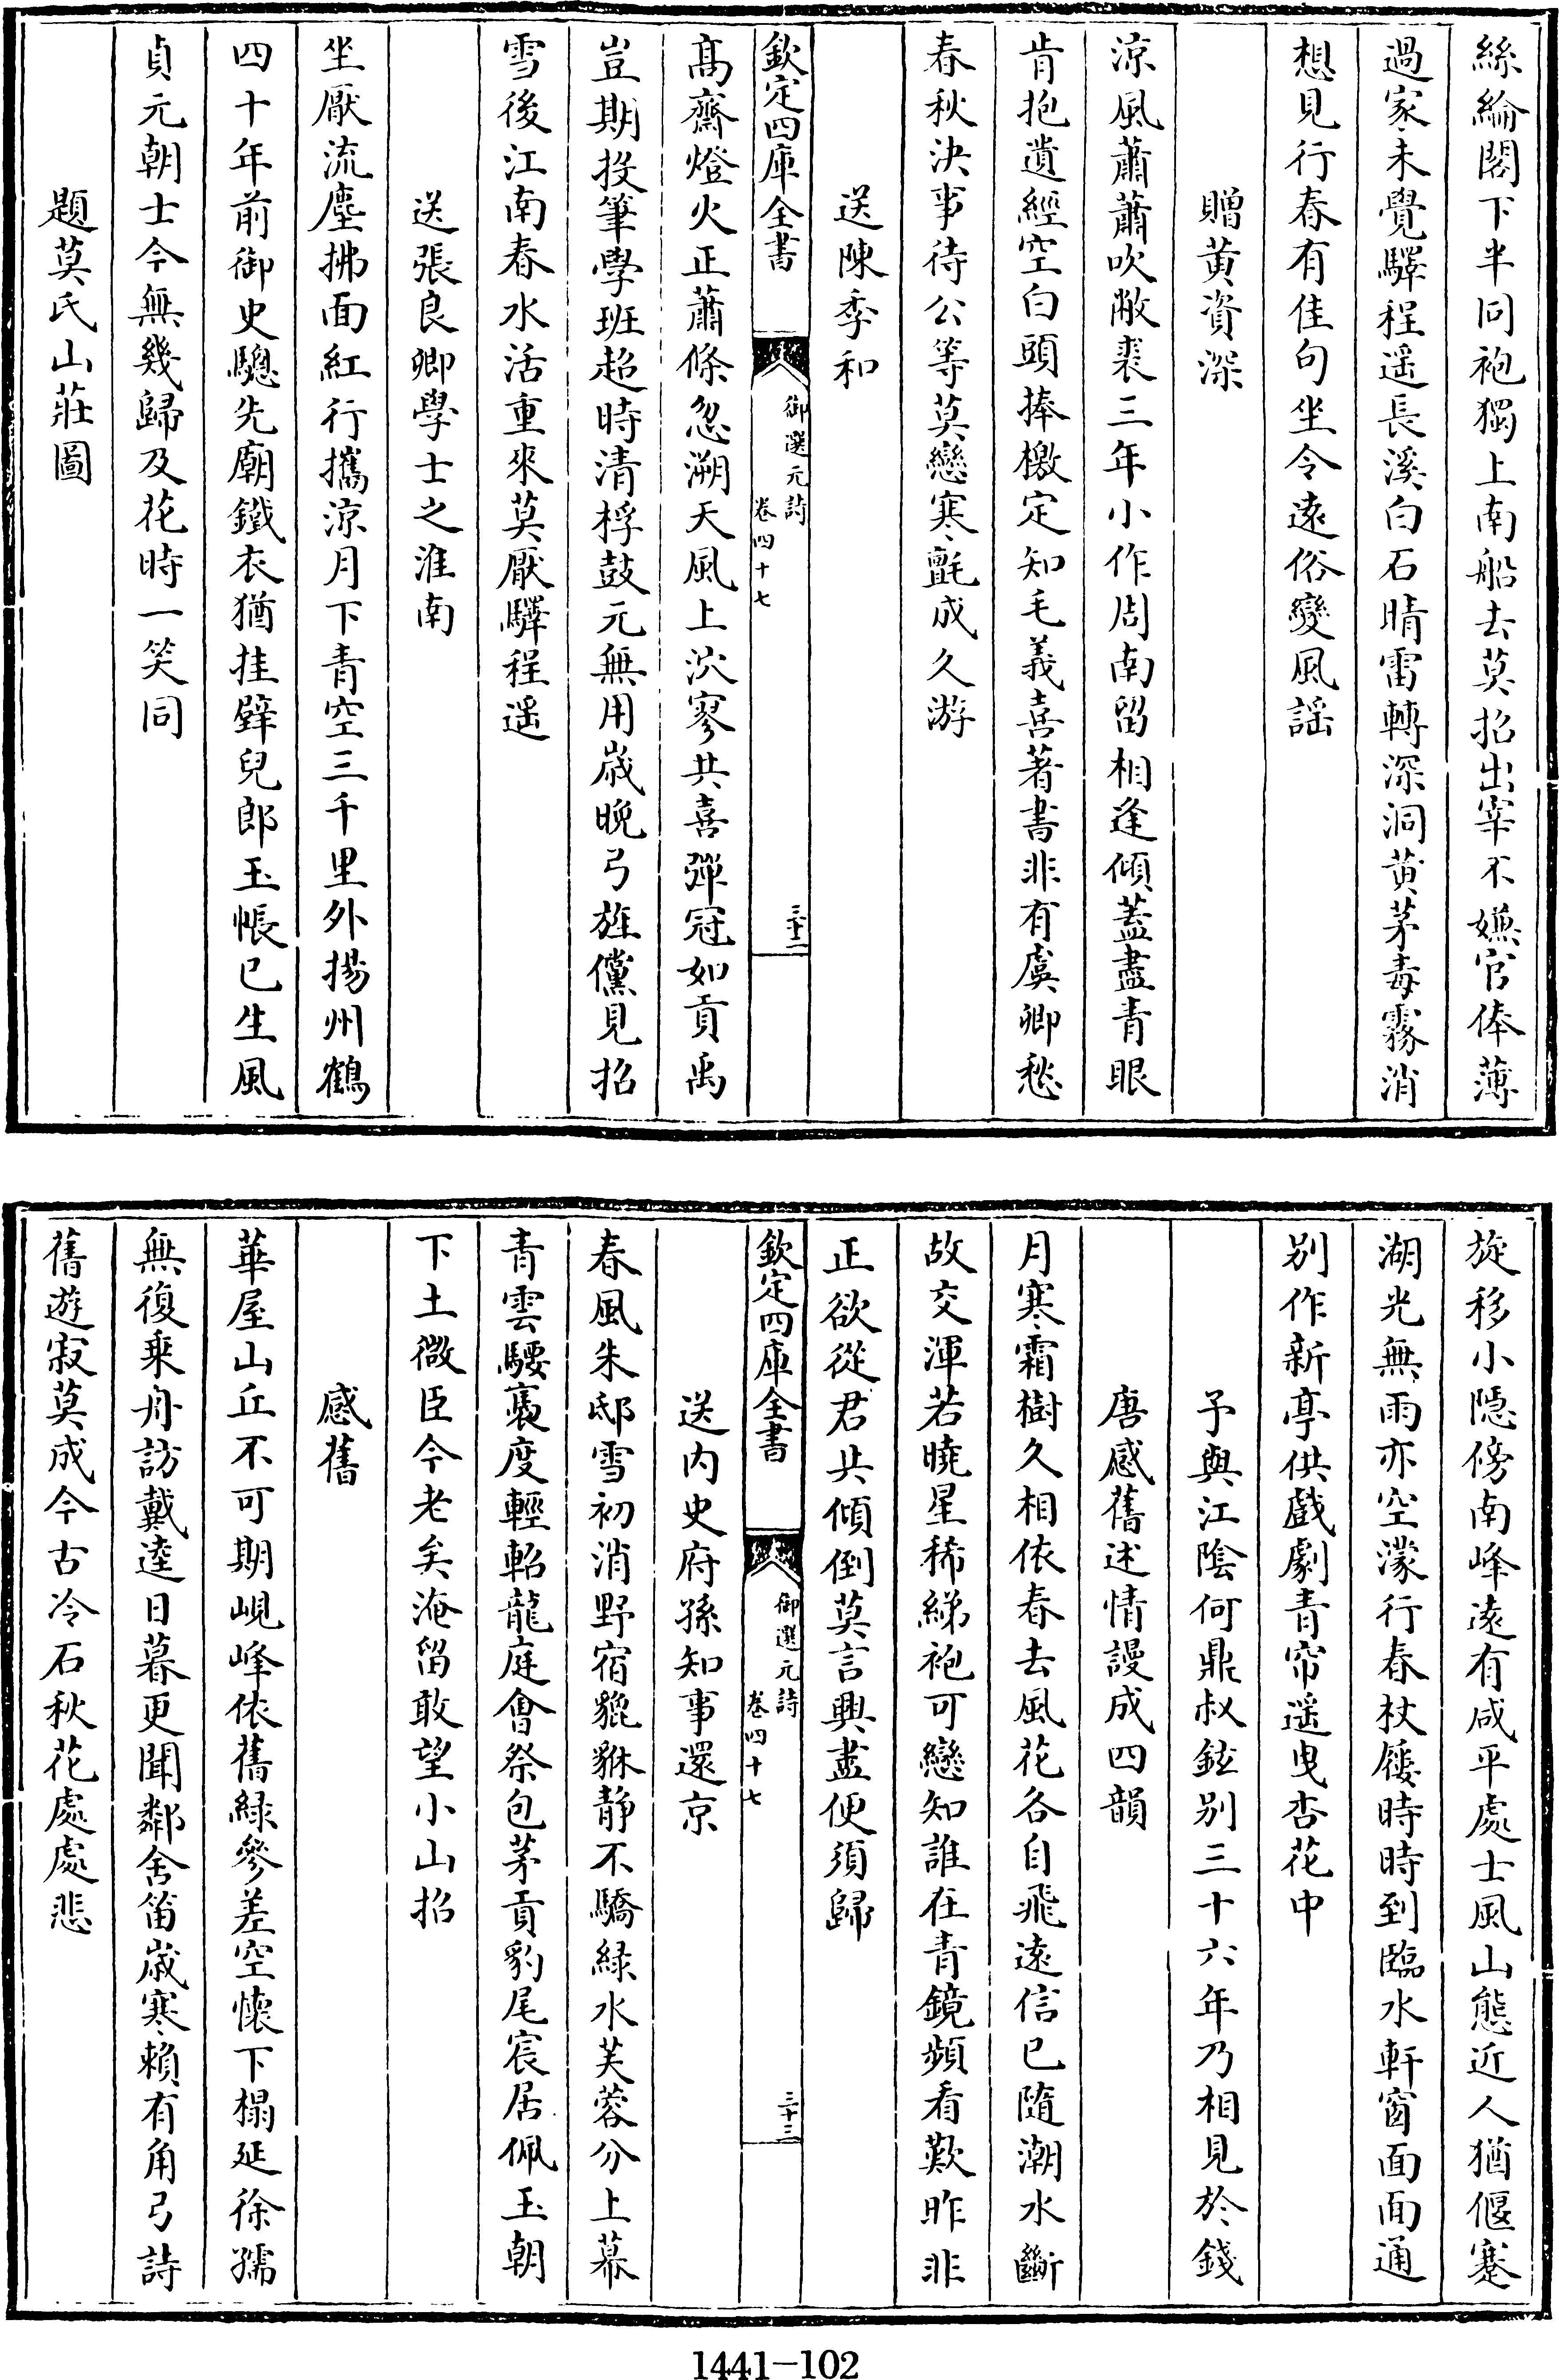 絲綸閣下半同袍獨上南船去莫招出宰不嫌官俸薄
過家未覺驛程遥長溪白石晴雷轉深洞黄茅毒霧消
想見行春有佳句坐令遠俗變風謡
贈黄資深
涼風蕭蕭吹敝裘三年小作周南留相逢傾蓋盡青眼
肯抱遺經空白頭捧檄定知毛義喜著書非有虞卿愁
春秋決事待公等莫戀寒氊成久游
送陳季和
欽定四庫全書
御選元詩
卷四十七
三十二
髙齋燈火正蕭條忽溯天風上泬寥共喜彈冠如貢禹
豈期投筆學班超時清桴鼓元無用嵗晚弓旌儻見招
雪後江南春水活重來莫厭驛程遥
送張良卿學士之淮南
坐厭流塵拂面紅行攜涼月下青空三千里外揚州鶴
四十年前御史驄先廟鐵衣猶挂壁兒郎玉帳已生風
貞元朝士今無幾歸及花時一笑同
題莫氏山莊圖
旋移小隱傍南峰遠有咸平處士風山態近人猶偃蹇
湖光無雨亦空濛行春杖屨時時到臨水軒窗面面通
别作新亭供戲劇青帘遥曳杏花中
予與江陰何鼎叔鉉别三十六年乃相見於錢
唐感舊述情謾成四韻
月寒霜樹久相依春去風花各自飛遠信已隨潮水斷
故交渾若曉星稀綈袍可戀知誰在青鏡頻看歎昨非
正欲從君共傾倒莫言興盡便須歸
欽定四庫全書
御選元詩
卷四十七
三十三
送内史府孫知事還京
春風朱邸雪初消野宿貔貅静不驕緑水芙蓉分上幕
青雲騕褭度輕軺龍庭會祭包茅貢豹尾宸居佩玉朝
下土微臣今老矣淹留敢望小山招
感舊
華屋山丘不可期峴峰依舊緑參差空懷下榻延徐孺
無復乘舟訪戴逵日暮更聞鄰舍笛嵗寒賴有角弓詩
舊遊寂莫成今古冷石秋花處處悲
1441-102